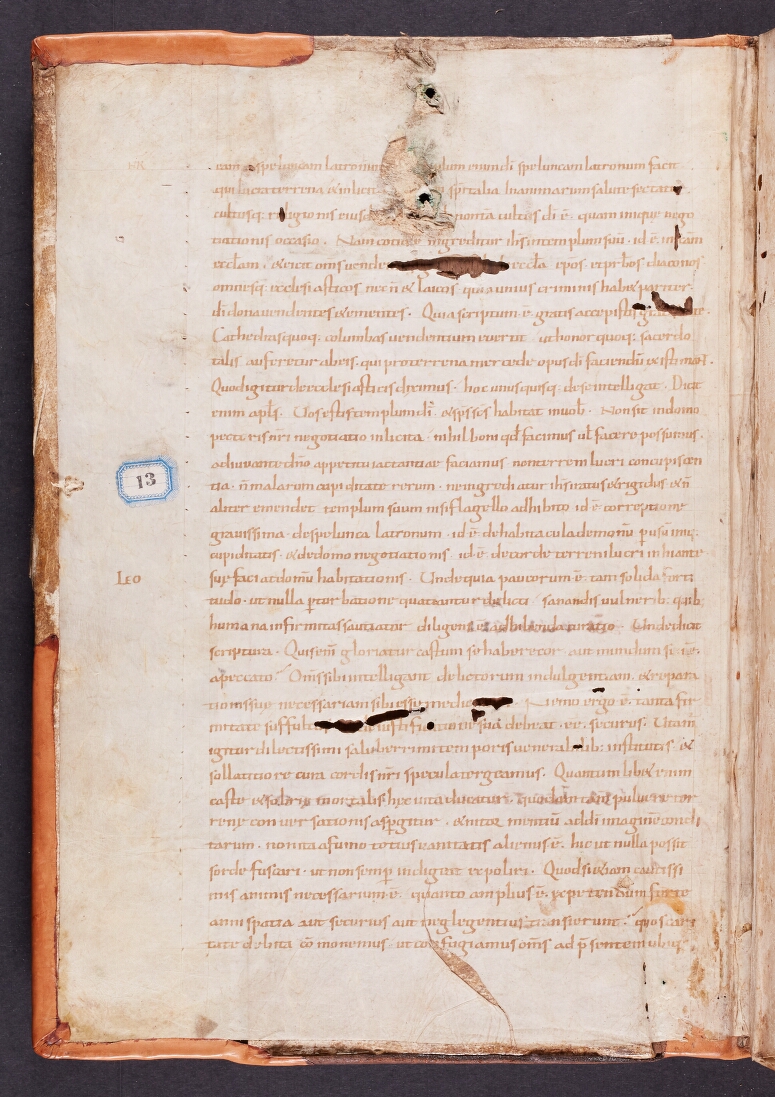 eam speluncam latronum dum enim di speluncam latronum facit
qui lucra terrena & inlicit spiritalia hi animarum salute sectatur
cultusq; religionis eiusd non tā cultus di ē quam iniquę nego
tiationis occasio . Nam cotidie ingreditur ihs in templum suū . id ē in sčam
ecclam . & eicit oms vende eccla . epos . et prbos diaconos
omnesq; ecclesiasticos necñ & laicos quia unius criminis habe& pariter
di dona vendentes & ementes . Quia scriptum ē . gratis accepistis gratis date
Cathedras quoq; columbas uendentium euertit . ut honor quoq; sacerdo
talis auferetur ab eis . qui pro terrena mercede opus di faciendū existimant .
Quod igitur de ecclesiasticis diximus . hoc unusquisq; de se intelligat . Dicit
enim apls . Vos estis templum di . & sps scs habitat in uob . Non sit in domo
pectoris nri negotiatio inlicita . nihil boni qd facimus ul facere possumus .
adiuuante dño appetitu iactantiae faciamus non terreni lucri concupiscen
tia . ñ malarum cupiditate rerum . ne ingrediatur ihs iratus & rigidus & ñ
aliter emendet templum suum nisi flagello adhibito id ē correptione
grauissima . de spelunca latronum . id ē de habitacula demonū
cupiditatis . & de domo negotiationis id ē de corde terreni lucri inhiante
suę faciat domū habitationis . Unde quia paucorum ē . tam solida forti
tudo . ut nulla perturbatione quatiantur delicti sanandis uulnerib; quib;
humana infirmitas sautiatur diligens adhibenda curatio . Unde dicit
scriptura . Quis enim gloriatur castum se habere cor . aut mundum se ēē
a peccato . Oms sibi intelligant delictorum indulgentiam . & repara
tionis suę necessariam sibi esse medi Nemo ergo ē . tanta fir
mitate suffult iustificatione ut de sua debeat . ēē . securus . Utam
igitur dilectissimi saluberrimi temporis uenerabilib; institutis &
sollicitiore cura cordis nri specula tergeamus . Quantum lib& enim
caste & sobrie mortalis hęc uita ducatur . quodam tam puluere ter
rene conuersationis aspergitur . & nitor mentiū ad di imaginē condi
tarum . non ita a fumo totius uanitatis alienus ē . hic ut nulla possit
sorde fuscari . ut non semp indigeat expoliri . Quod si etiam cautissi
mis animis necessarium ē . quanto amplius ē . expetendum
anni spatia aut securius aut neglegentius transierunt . quos cari
tate debita cōmonemus . ut confugiamus oms ad psentem
LEO
13